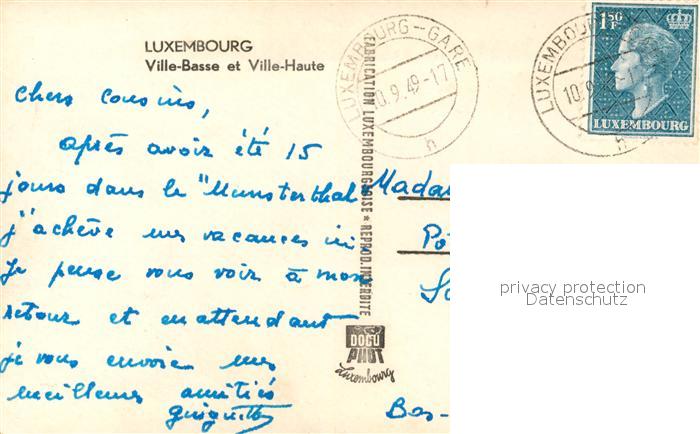 LUXEMBOURG
Ville-Basse et Ville-Haute
Chers cousins,
après avoir été 15
jours dans le "Munsterthal
j'achève mes vacances ici
Je pense vous voir à mon
retour et en attendant
je vous envoie mes
meilleures amitiés
FABRICATION LUXEMBOURGEOISE * REPROD. INTERDITE
DOCU
PHOT
Luxembourg
LUXEMBOURG-GARE
10.9.49-17
h
LUXEMBOURG
10.9
h
1.50
F
LUXEMBOURG
Madam
Bas-
privacy protection
Datenschutz